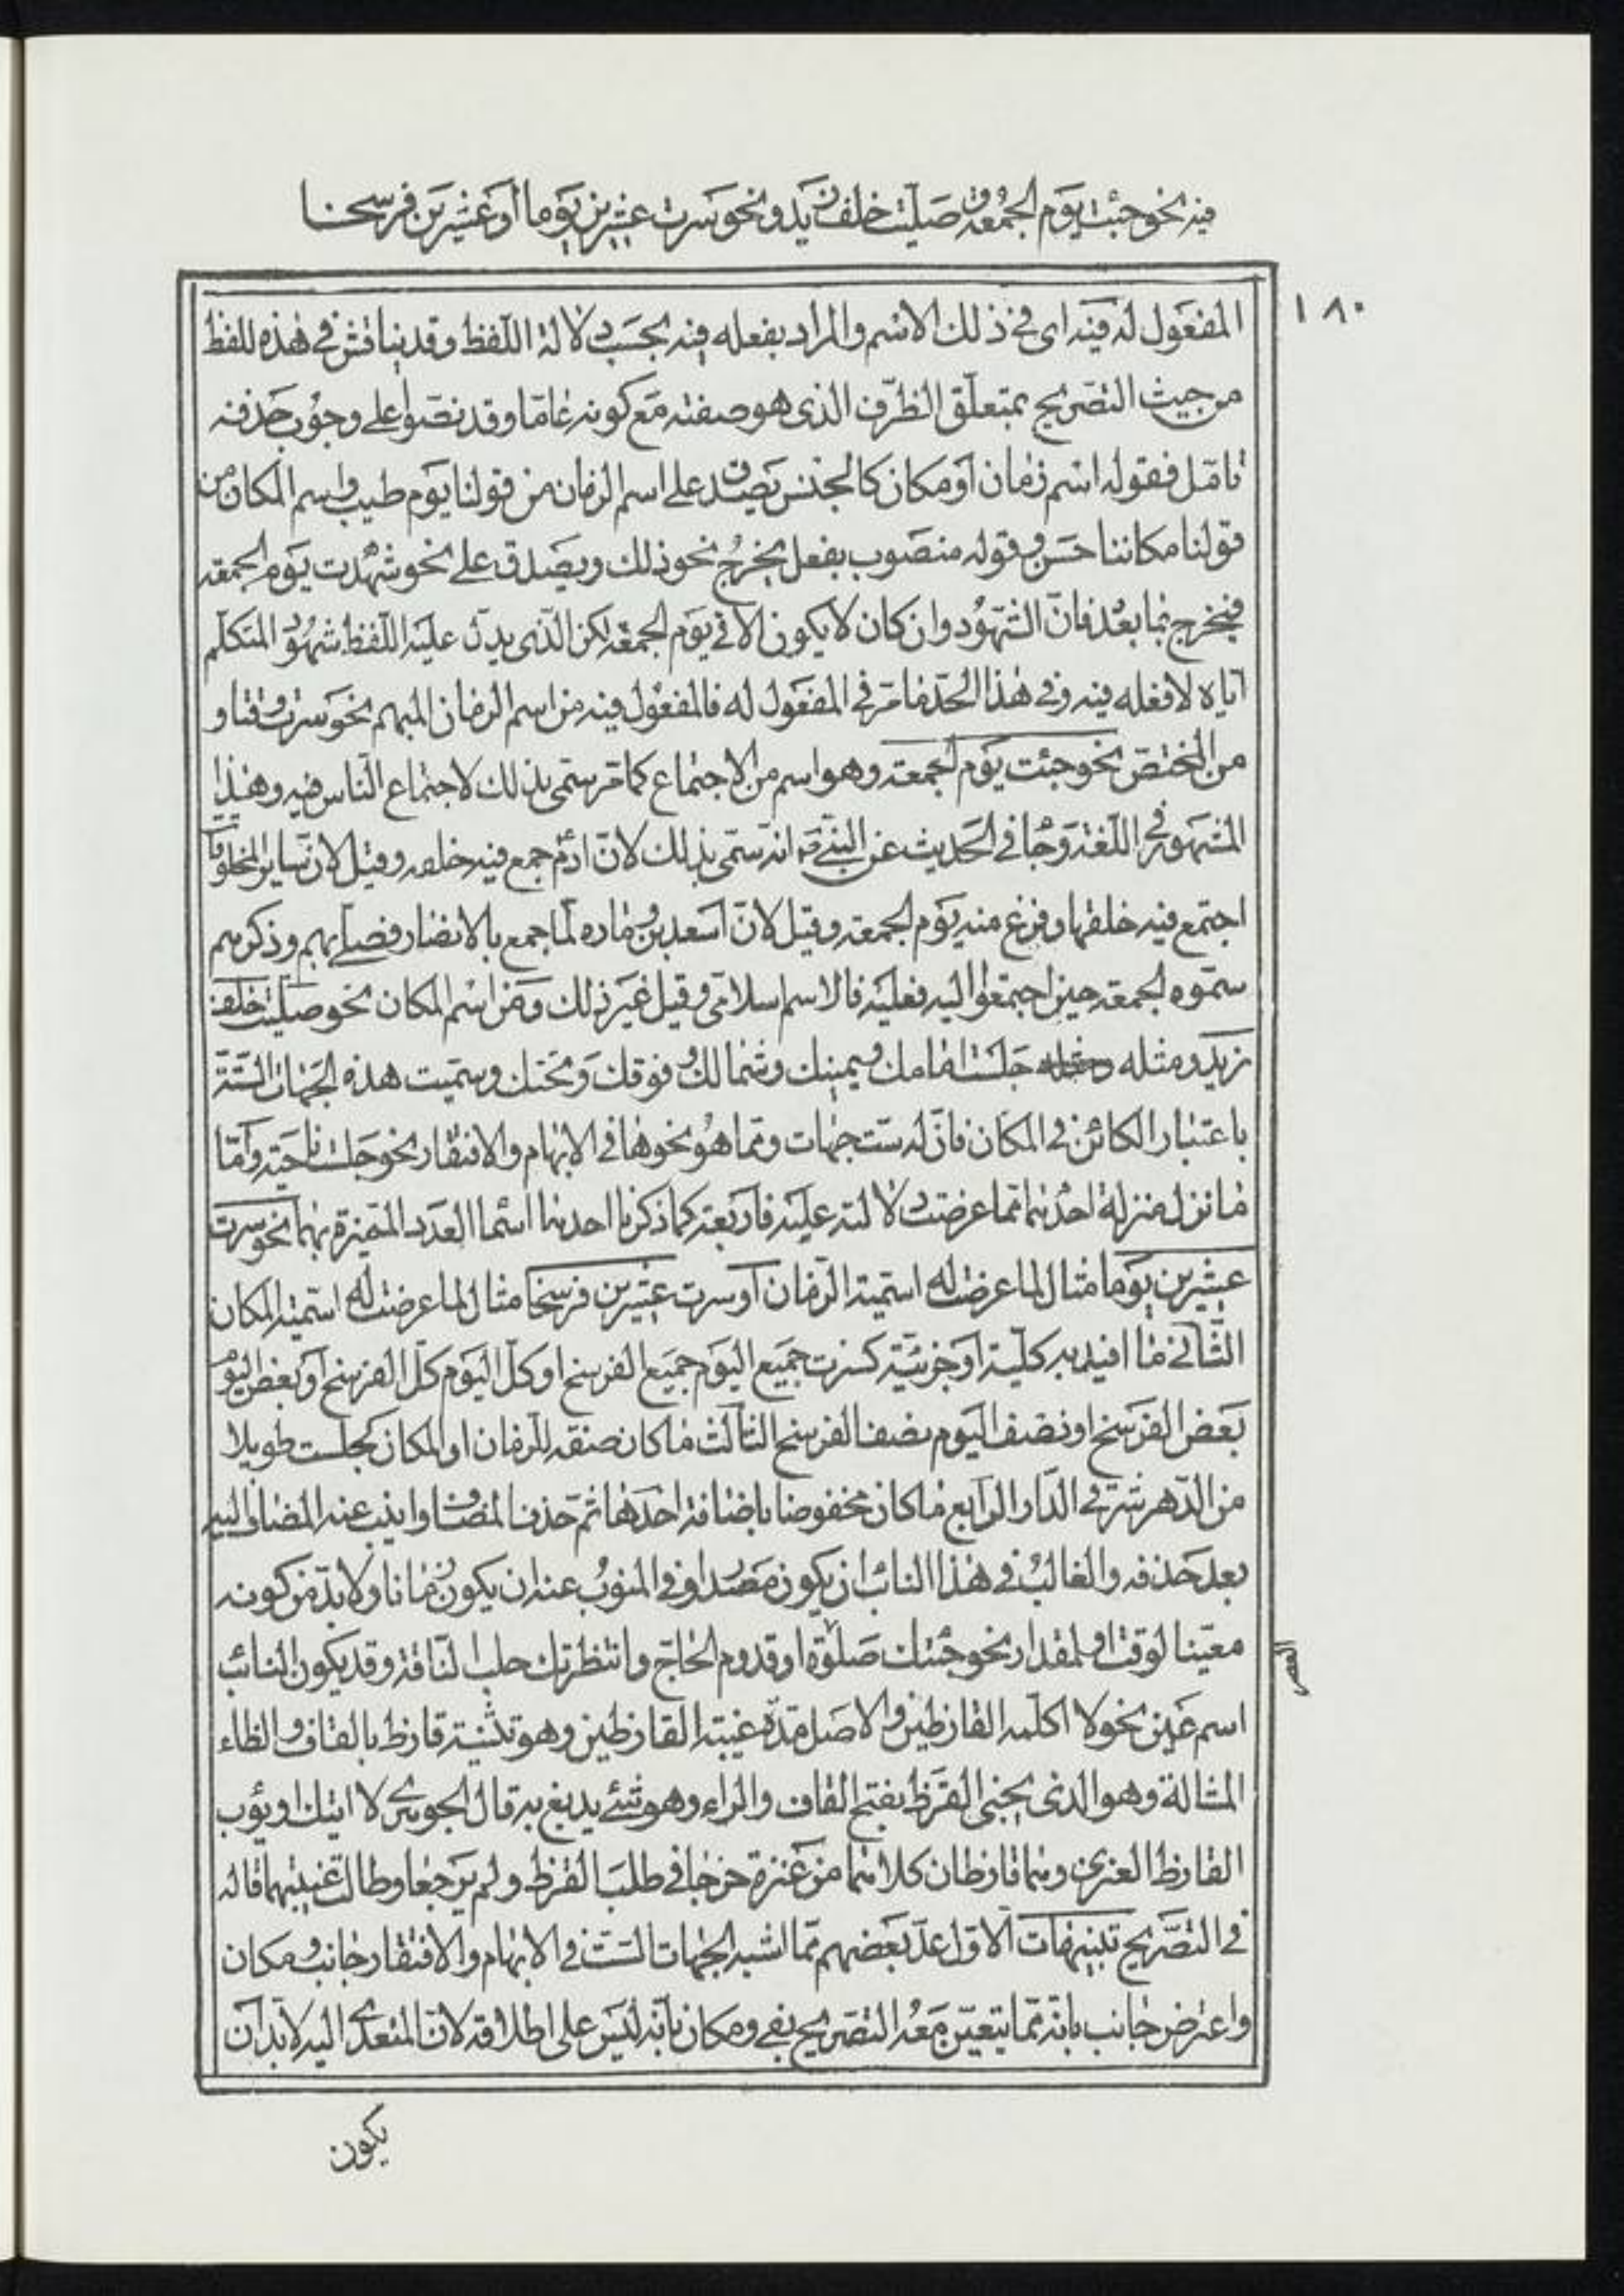 فيه نحو جئت يوم الجمعة وصليت خلف زيد ونحو سرت عشرين يوما أو عشرين فرسخا
١٨٠
المفعول له فيه اى فى ذلك الاسم والمراد بفعله فيه بحسب دلالة اللفظ وقد يناقش فى هذه اللفظ
من حيث التصريح بمتعلق الظرف الذى هو صفته مع كونه عاما وقد نصوا على وجوب حذفه
تامل فقوله اسم زمان او مكان كالجنس يصدق على اسم الزمان من قولنا يوم طيب واسم المكان من
قولنا مكاننا حسن وقوله منصوب بفعل يخرج نحو ذلك ويصدق على نحو شهدت يوم الجمعة
فيخرج بما بعد فان الشهود وان كان لا يكون الا فى يوم الجمعة لكن الذى يدل عليه اللفظ شهود المتكلم
اياه لا فعله فيه وفى هذا الحد ما مر فى المفعول له فالمفعول فيه من اسم الزمان المبهم نحو سرت وقتا و
من المختص نحو جئت يوم الجمعة وهو اسم من الاجتماع كما مر سمى بذلك لاجتماع الناس فيه وهذا
المشهور فى اللغة وجا فى الحديث عن النبى انه سمى بذلك لان ادم جمع فيه خلقه وقيل لان ساير المخلوقات
اجتمع فيه خلقها وفرغ منه يوم الجمعة وقيل لان اسعد بن زراره لما جمع بالانصار فصلى بهم وذكرهم
سموه الجمعة حين اجتمعوا اليه فعليه فالاسم اسلامى وقيل غير ذلك ومن اسم المكان نحو صليت خلف
زيد ومثله جلست امامك ويمينك وشمالك وفوقك وتحتك وسميت هذه الجهات الستة
باعتبار الكائن فى المكان فان له ست جهات ومما هو نحوها فى الابهام والافتقار نحو جلست ناحية وأما
ما نزل منزلة احدهما مما عرضت دلالته عليه فاربعة كما ذكرنا احدها اسما العدد المتميزة بهما نحو سرت
عشرين يوما مثال لما عرضت له اسمية الزمان أو سرت عشرين فرسخا مثال لما عرضت له اسمية المكان
الثانى ما افيد به كلية او جزئية كسرت جميع اليوم جميع الفرسخ او كل اليوم كل الفرسخ أو بعض اليوم
بعض الفرسخ او نصف اليوم نصف الفرسخ الثالث ما كان صفة للزمان او المكان كجلست طويلا
من الدهر شرقى الدار الرابع ما كان مخفوضا باضافة احدهما ثم حذف المضاف وانيب عنه المضاف اليه
بعد حذفه والغالب فى هذا النائب ان يكون مصدرا وفى المنوب عنه ان يكون زمانا ولا بد من كونه
معينا لوقت او لمقدار نحو جئتك صلوة او قدوم الحاج وانتظرتك حلب الناقة وقد يكون النائب
العصر
اسم عين نحو لا اكلمه القارظين والاصل مدة غيبة القارظين وهو تثنية قارظ بالقاف والظاء
المشالة وهو الذى يجنى القرظ بفتح القاف والراء وهو شئ يدبغ به قال الجوهرى لا اتيك او يؤب
القارظ العنزى وهما قارظان كلاهما من عنزة خرجا فى طلب القرظ ولم يرجعا وطالت غيبتهما قاله
فى التصريح تنبيهات الاول عد بعضهم مما اشبه الجهات الست فى الابهام والافتقار جانب ومكان
واعترض جانب بانه مما يتعين معه التصريح بفى ومكان بانه ليس على اطلاقه لان المتعدى اليه لا بد ان
يكون